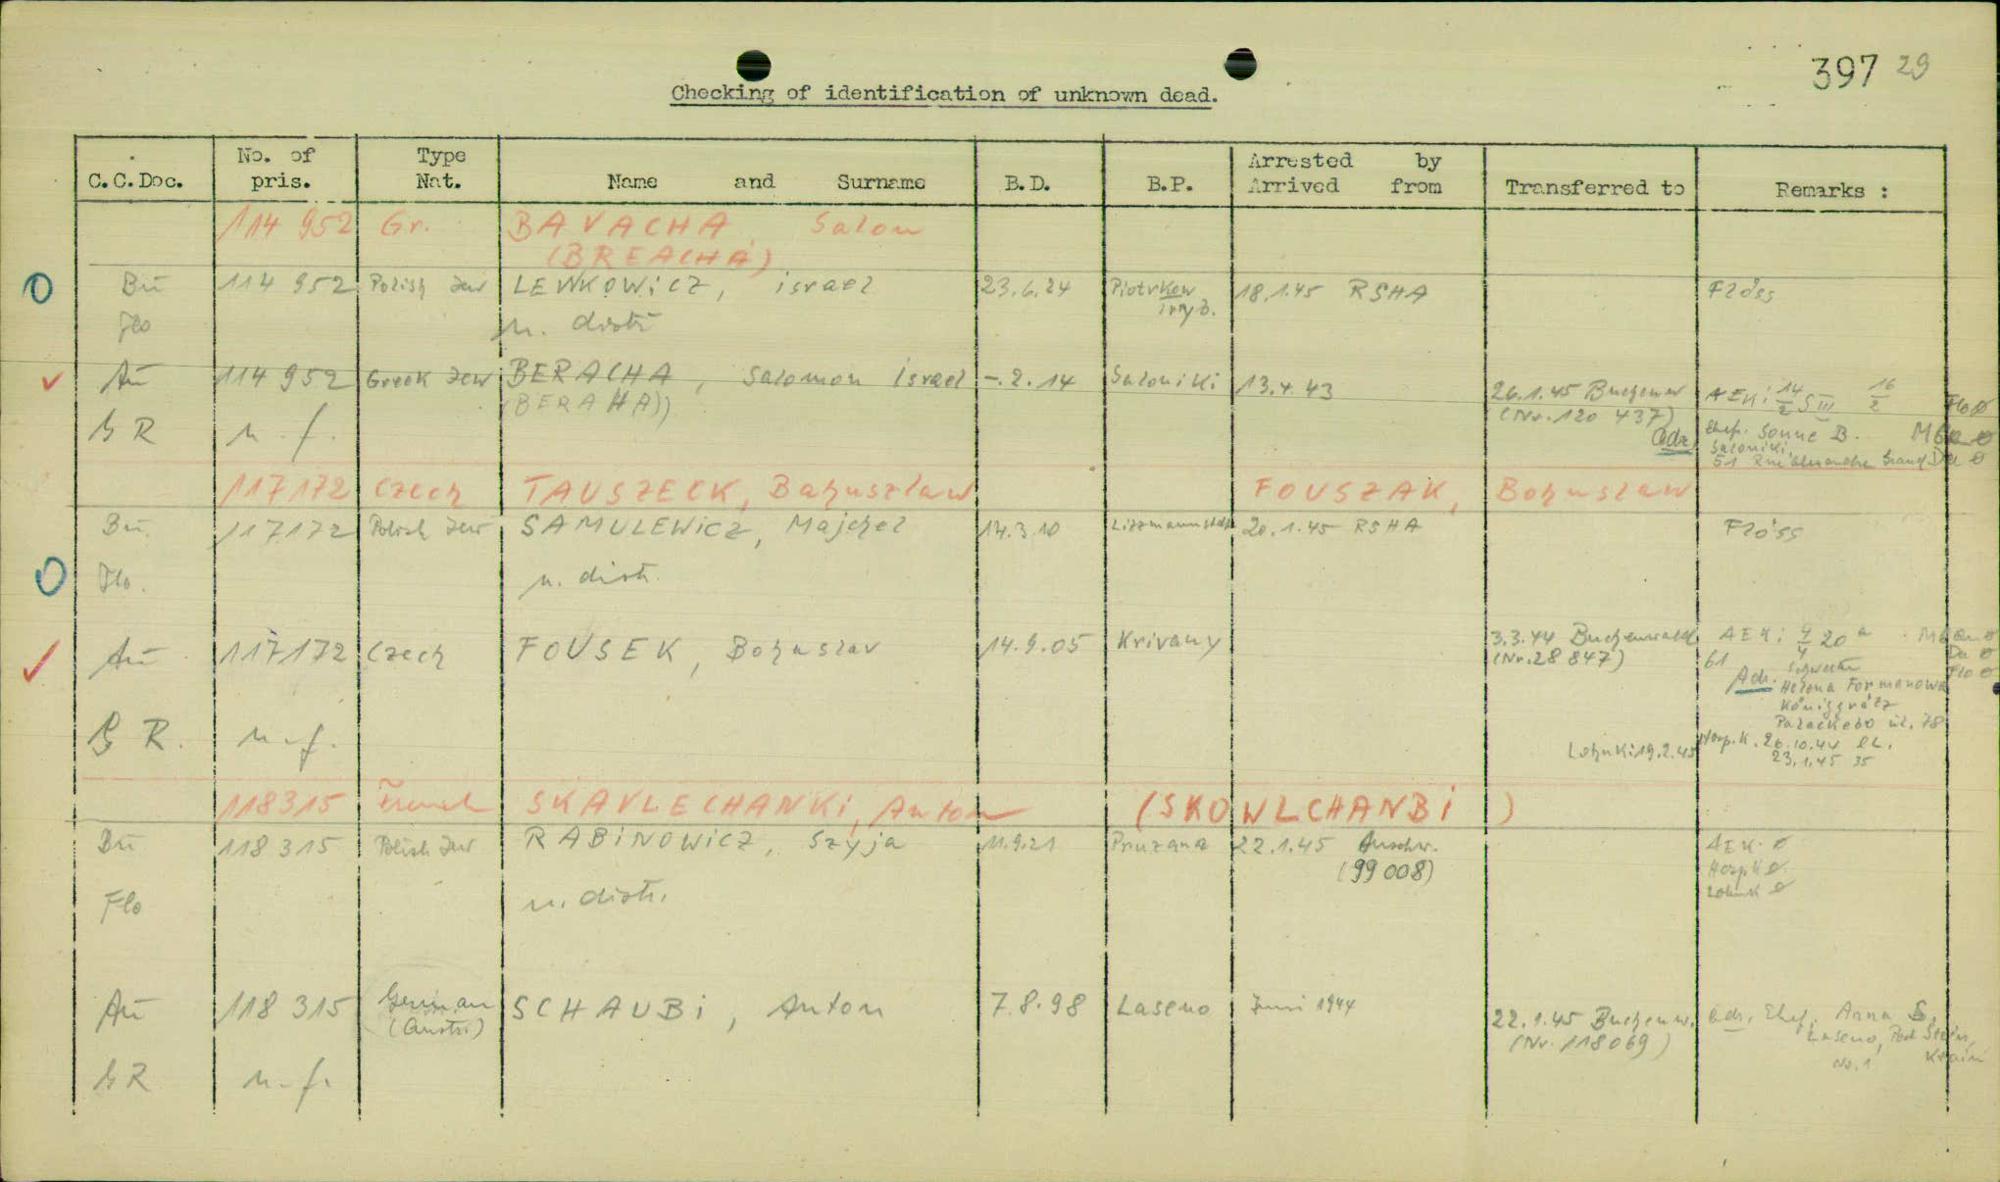 397 29
Checking of identification of unknown dead.
C.C.Doc. No. of pris. Type Nat. Name and Surname B.D. B.P. Arrested by Arrived from Transferred to Remarks :
114 952 Gr. BAVACHA Salon
(BREACHA)
Bu 114 952 Polish Jew LEWKOWicZ, israel 23.6.24 Piotrkow 18.1.45 RSHA Flöss
Flo n. distr.
Au 114 952 Greek Jew BERACHA, Salomon israel -.2.14 Saloniki 13.4.43 26.1.45 Buchenw AEK: 14/2 S III 16/2 Flo 0
(BERAHA)) (Nr. 120 437)
GR n.f. Adr. Ehef. Sonne B. Mau 0
Saloniki,
51 Rue Alexandre Grand Da 0
117172 Czech TAUSZECK, Bahuszlaw FOUSZAK, Bohuslaw
Bu. 117172 Polish Jew SAMULEWicZ, Majchel 14.3.10 Litzmannstadt 20.1.45 RSHA Flöss
Flo. n. distr.
Au 117172 Czech FOUSEK, Bohuslav 14.9.05 Krivany 3.3.44 Buchenwald AEK: 20a
(Nr. 28 847) 61 Da 0
Adr. Schwester Flo 0
Helena Formanowa
Königgrätz
Palackeho ul. 78
GR. n.f. Lohnki 19.2.45 Hosp.K. 26.10.44
23.1.45 35
118315 French SKAVLECHANKi, Anton (SKOWLCHANBi)
Bu 118315 Polish Jew RABiNOWicZ, Szyja 11.9.21 Pruzana 22.1.45 Auschw. AEK. 0
(99 008) Hosp K 0
Lohnk 0
Flo n. distr.
Au 118 315 German SCHAUBi, Anton 7.8.98 Laseno Juni 1944 22.1.45 Buchenw. Adr. Ehef. Anna S.
(Austr.) (Nr. 118069) Laseno, Post Stein,
No. 1 Krain
GR n.f.